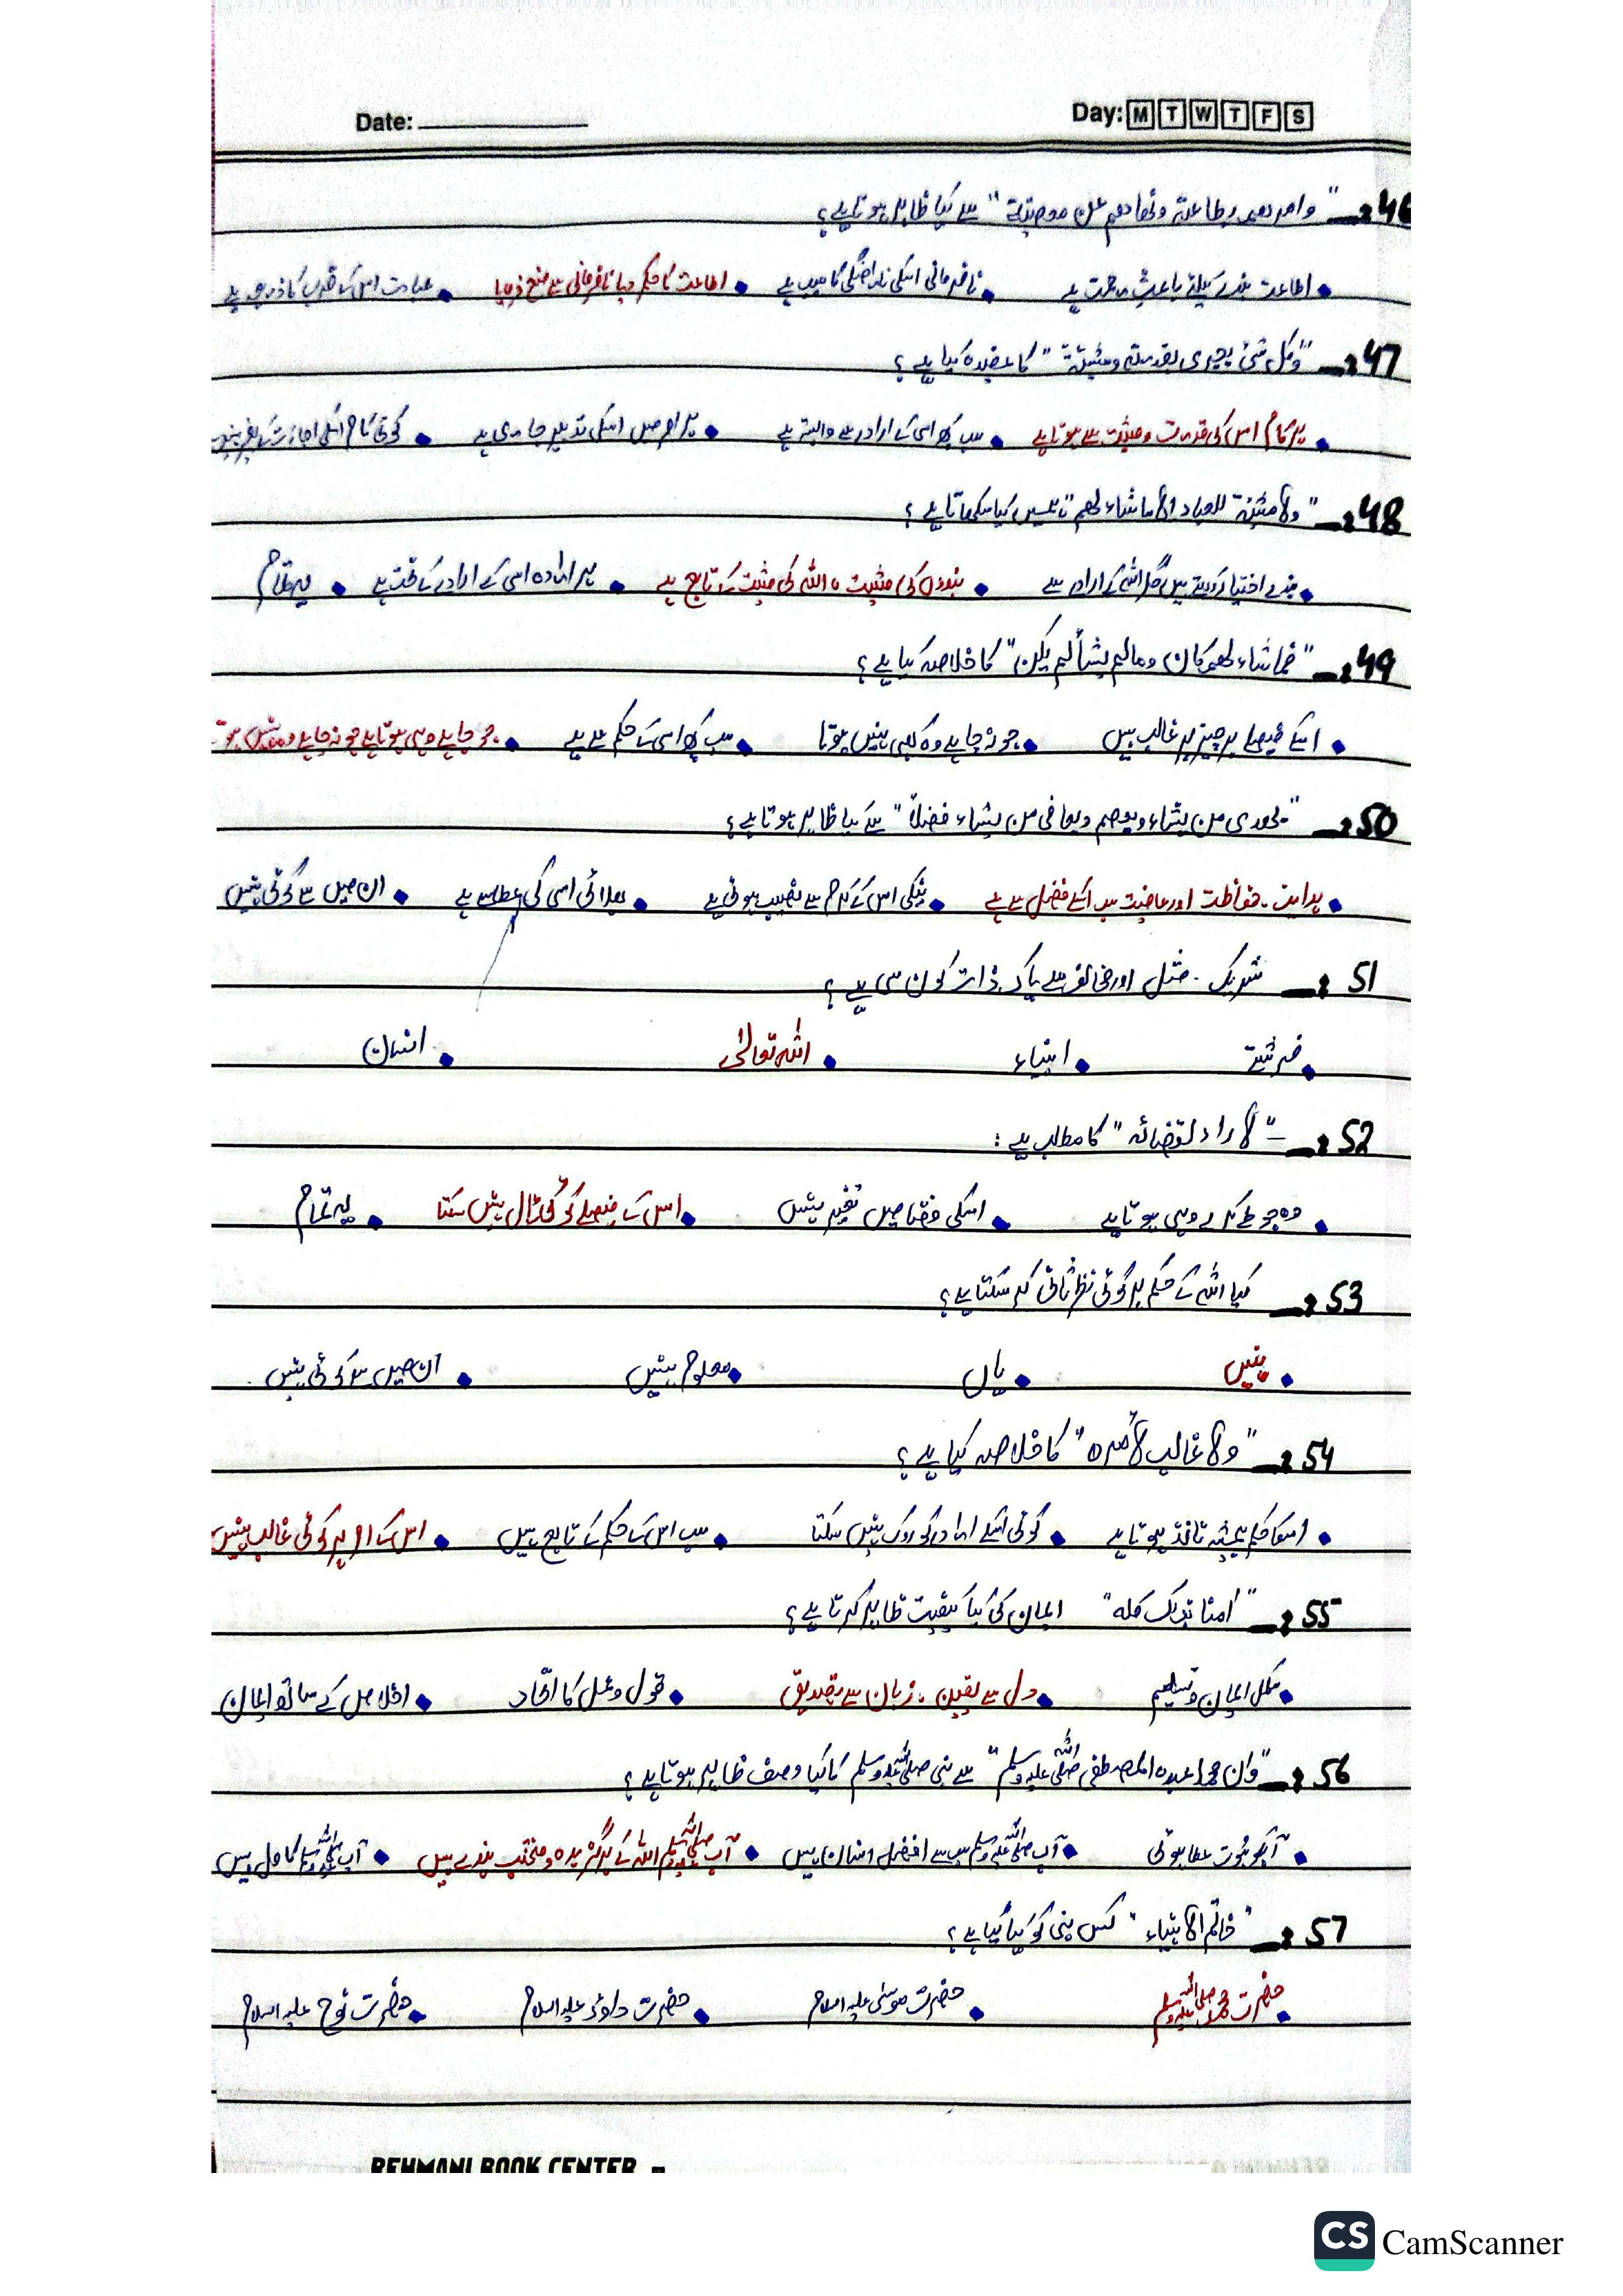 Date: Day: M T W T F S
46 :— "وامرهم بطاعته ونهاهم عن معصيته" سے کیا ظاہر ہوتا ہے؟
• اطاعت بندے کیلئے باعثِ رحمت ہے • نافرمانی اسکی ناراضگی کا سبب ہے • اطاعت کا حکم دیا نافرمانی سے منع فرمایا • عبادت اس کے قرب کا ذریعہ ہے
47 :— "وكل شئ يجرى بقدرته ومشيئته" کا عقیدہ کیا ہے؟
• ہر کام اس کی قدرت و مشیت سے ہوتا ہے • سب کچھ اسی کے ارادے سے وابستہ ہے • ہر امر میں اسکی تدبیر جاری ہے • کوئی کام اسکی اجازت کے بغیر نہیں
48 :— "ولا مشيئة للعباد الا ماشاء لهم" ہمیں کیا سکھاتا ہے؟
• بندے اختیار رکھتے ہیں مگر اللہ کے ارادے سے • بندوں کی مشیت، اللہ کی مشیت کے تابع ہے • ہر ارادہ اسی کے ارادے کے تحت ہے • یہ تمام
49 :— "فما شاء لهم كان ومالم يشأ لم يكن" کا خلاصہ کیا ہے؟
• اسکے فیصلے ہر چیز پر غالب ہیں • جو نہ چاہے وہ کبھی نہیں ہوتا • سب کچھ اسی کے حکم سے ہے • جو چاہے وہی ہوتا ہے جو نہ چاہے وہ نہیں ہوتا
50 :— "يهدى من يشاء ويعصم ويعافى من يشاء فضلاً" سے کیا ظاہر ہوتا ہے؟
• ہدایت، حفاظت اور عافیت سب اسکے فضل سے ہے • نیکی اس کے کرم سے نصیب ہوتی ہے • بھلائی اسی کی عطا سے ہے • ان میں سے کوئی نہیں
51 :— شریک، مثل اور مخالف سے پاک ذات کون سی ہے؟
• فرشتے • انبیاء • اللہ تعالیٰ • انسان
52 :— "لا راد لقضائه" کا مطلب ہے:
• وہ جو طے کرے وہی ہوتا ہے • اسکی قضا میں تغیر نہیں • اس کے فیصلے کو کوئی ٹال نہیں سکتا • یہ تمام
53 :— کیا اللہ کے حکم پر کوئی نظرثانی کر سکتا ہے؟
• نہیں • ہاں • معلوم نہیں • ان میں سے کوئی نہیں
54 :— "ولا غالب لأمره" کا خلاصہ کیا ہے؟
• اسکا حکم ہمیشہ نافذ ہوتا ہے • کوئی اسکے ارادے کو روک نہیں سکتا • سب اس کے حکم کے تابع ہیں • اس کے امر پر کوئی غالب نہیں
55 :— "امنا بذلك كله" ایمان کی کیا کیفیت ظاہر کرتا ہے؟
• مکمل ایمان و تسلیم • دل سے یقین، زبان سے تصدیق • قول و عمل کا اتحاد • اخلاص کے ساتھ ایمان
56 :— "وان محمدا عبده المصطفى صلی اللہ علیہ وسلم" سے نبی صلی اللہ علیہ وسلم کا کیا وصف ظاہر ہوتا ہے؟
• آپکو نبوت عطا ہوئی • آپ صلی اللہ علیہ وسلم سب سے افضل انسان ہیں • آپ صلی اللہ علیہ وسلم اللہ کے برگزیدہ و منتخب بندے ہیں • آپ صلی اللہ علیہ وسلم کامل ہیں
57 :— "خاتم الانبیاء" کس نبی کو کہا گیا ہے؟
• حضرت محمد صلی اللہ علیہ وسلم • حضرت موسیٰ علیہ السلام • حضرت داؤد علیہ السلام • حضرت نوح علیہ السلام
REHMANI BOOK CENTER
CS CamScanner